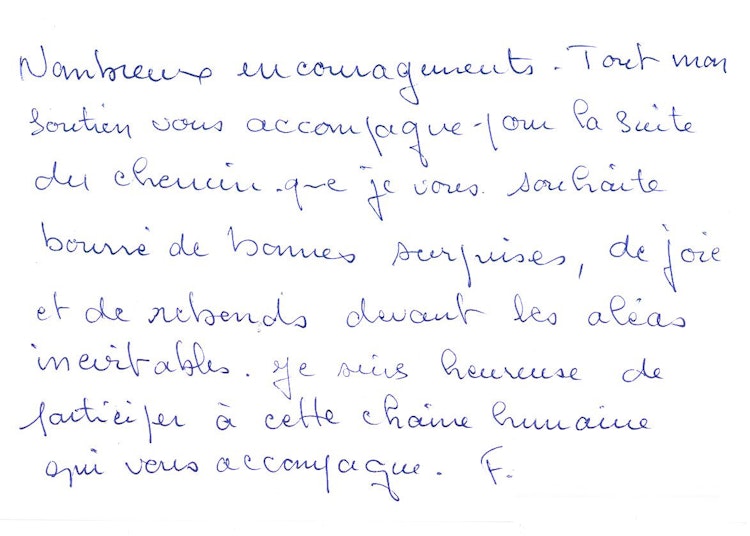 Nombreux encouragements. Tout mon
soutien vous accompagne pour la suite
du chemin que je vous souhaite
bourré de bonnes surprises, de joie
et de rebonds devant les aléas
inévitables. Je suis heureuse de
participer à cette chaîne humaine
qui vous accompagne. F.